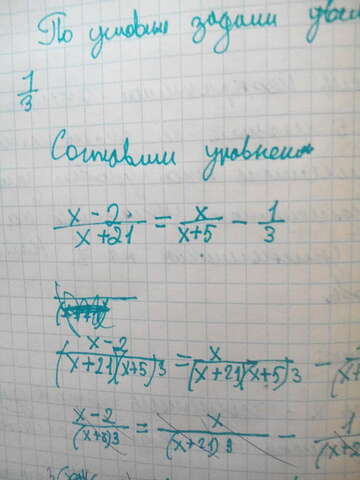 По условию задачи
1/3
Составим уравнение
x - 2 / x + 21 = x / x + 5 - 1/3
x - 2 / (x + 21)(x + 5)3 = x / (x + 21)(x + 5)3 -
x - 2 / (x + 8)3 = x / (x + 21)3 - 1